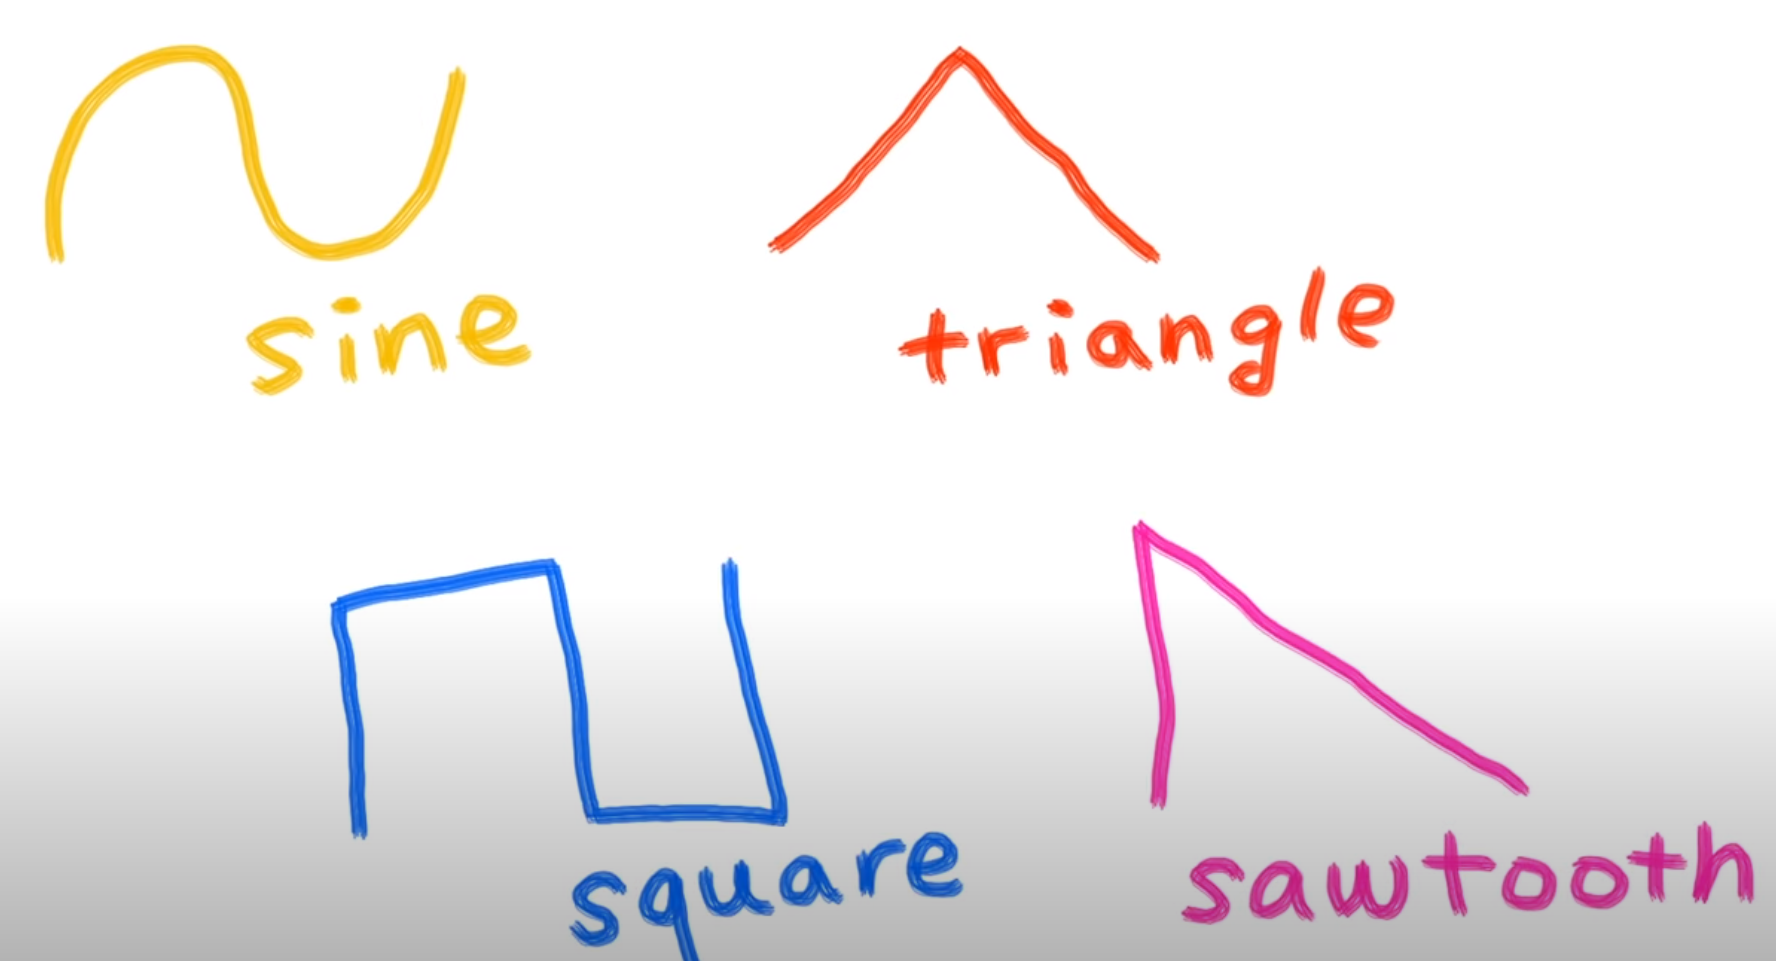 sine
triangle
square
sawtooth